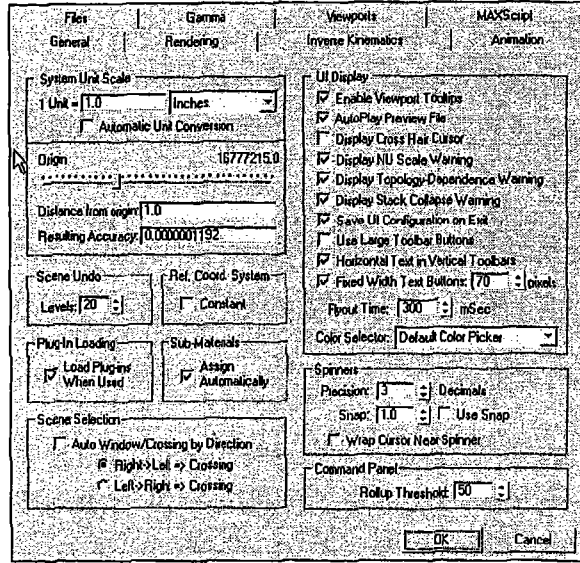 Files Gamma Viewports MAXScript
General Rendering Inverse Kinematics Animation
System Unit Scale
1 Unit = 1.0 Inches
Automatic Unit Conversion
Origin 16777215.0
Distance from origin: 1.0
Resulting Accuracy: 0.0000001192
Scene Undo
Levels: 20
Ref. Coord. System
Constant
Plug-In Loading
Load Plug-ins
When Used
Sub-Materials
Assign
Automatically
Scene Selection
Auto Window/Crossing by Direction
Right->Left => Crossing
Left->Right => Crossing
UI Display
Enable Viewport Tooltips
AutoPlay Preview File
Display Cross Hair Cursor
Display NU Scale Warning
Display Topology-Dependence Warning
Display Stack Collapse Warning
Save UI Configuration on Exit
Use Large Toolbar Buttons
Horizontal Text in Vertical Toolbars
Fixed Width Text Buttons: 70 pixels
Flyout Time: 300 mSec
Color Selector: Default Color Picker
Spinners
Precision: 3 Decimals
Snap: 1.0 Use Snap
Wrap Cursor Near Spinner
Command Panel
Rollup Threshold: 50
OK Cancel